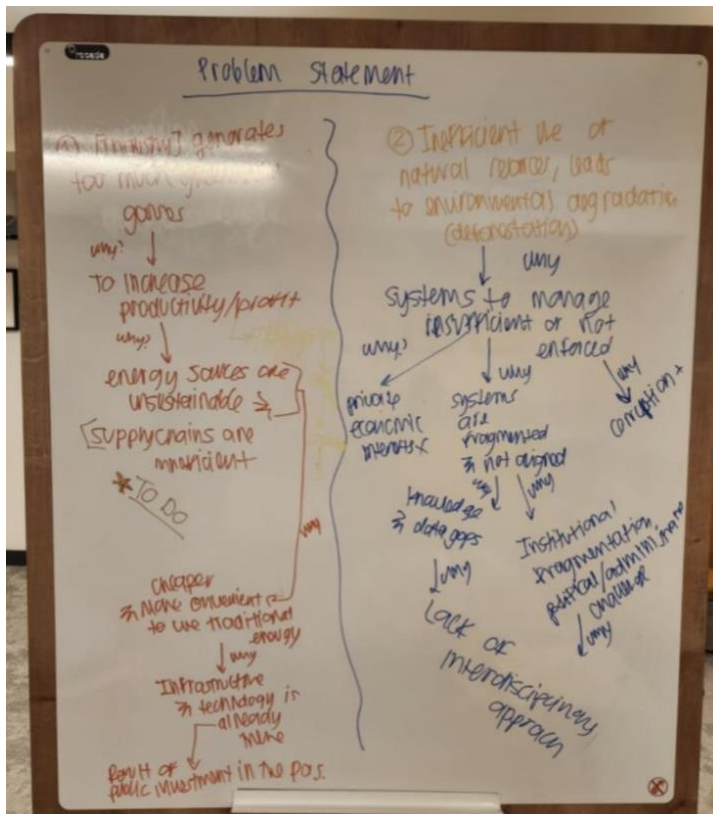 Problem Statement
① [Industry] generates
too much
gasses
why?
To increase
productivity/profit
why?
energy sources are
unsustainable &
[supplychains are
inefficient
* TO DO
why
cheaper
& more convenient
to use traditional
energy
why
Infrastructure
& technology is
already
there
Result of
public investment in the pas.
② Inefficient use of
natural resorces, leads
to environmental degradation
(deforestation)
why
systems to manage
insufficient or not
enforced
why?
private
economic
interests
why
systems
are
fragmented
& not aligned
why
corruption +
why
knowledge
& data gaps
why
Lack of
interdisciplinary
approach
why
Institutional
fragmentation
political/admini
challenge
why